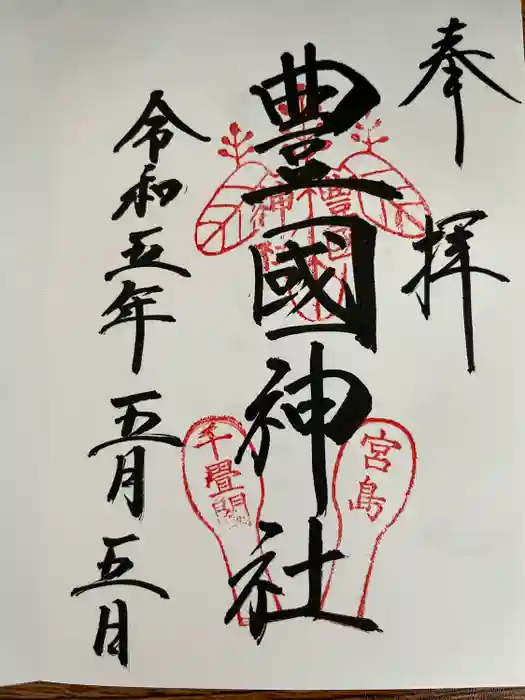 奉拝
豊國神社
宮島
千畳閣
令和五年五月五日